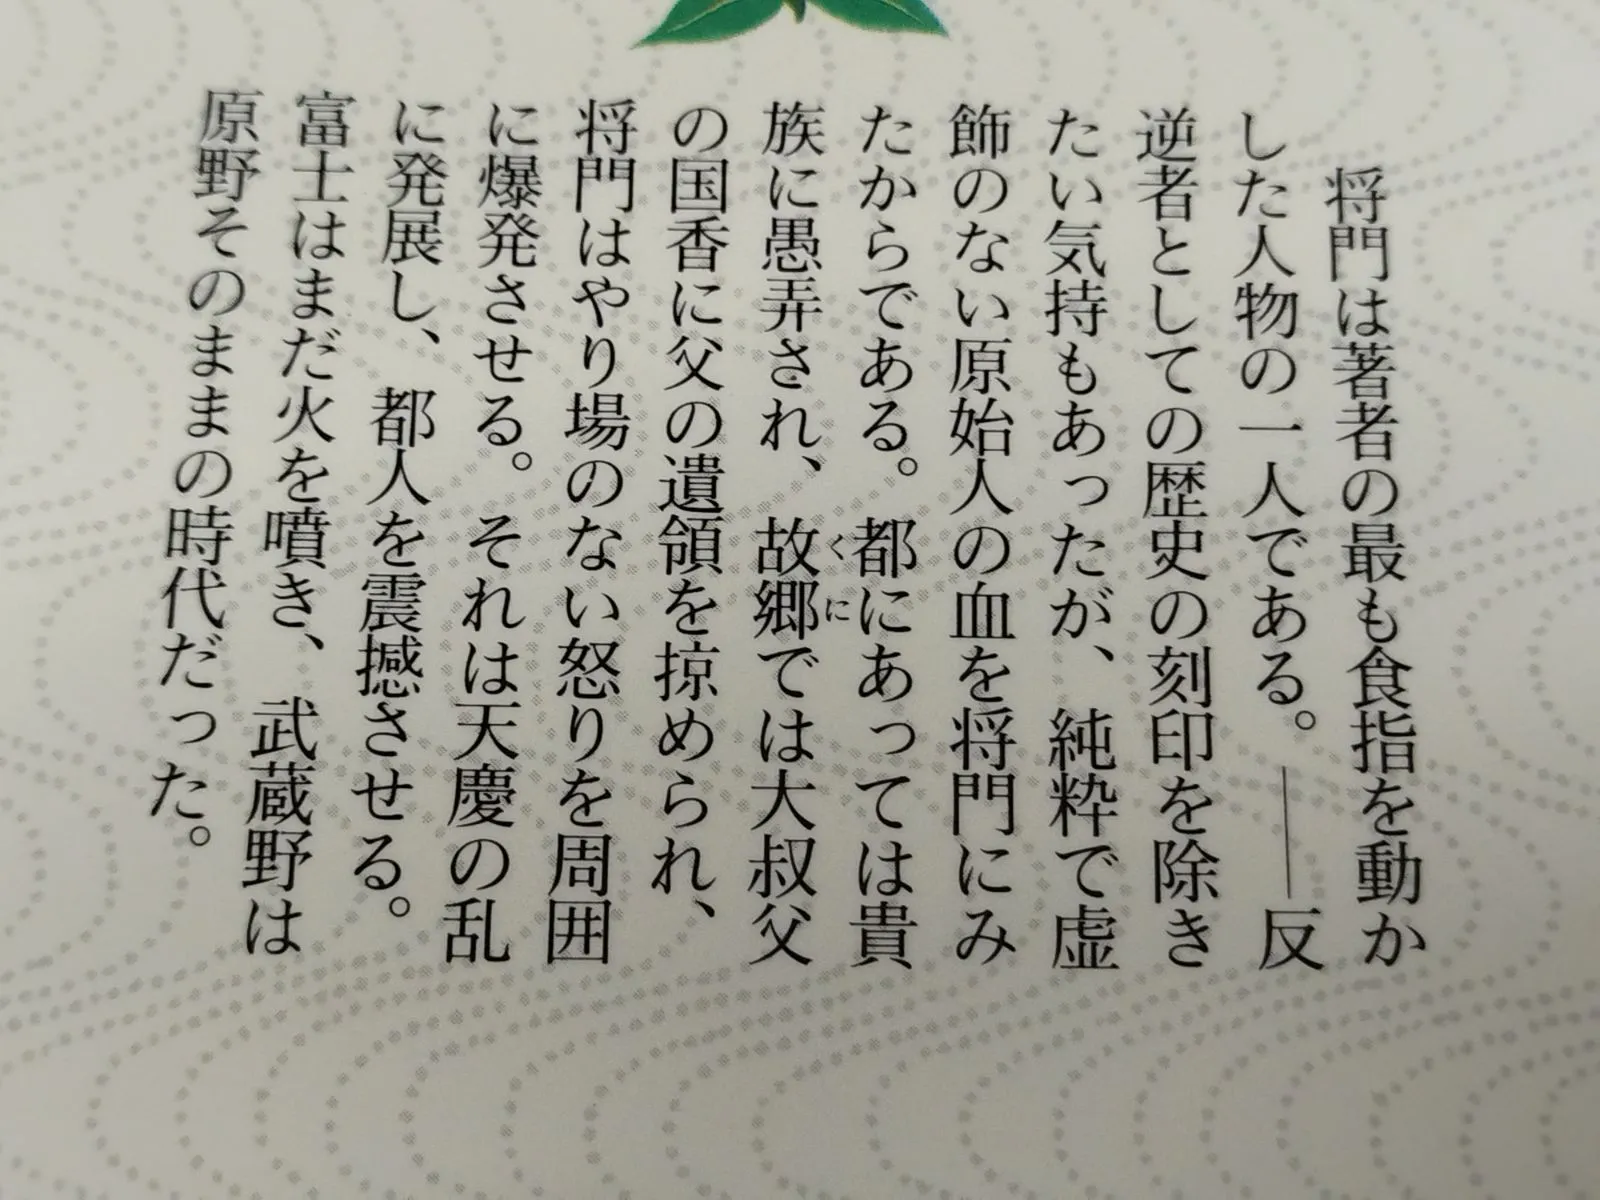 将門は著者の最も食指を動か
した人物の一人である。――反
逆者としての歴史の刻印を除き
たい気持もあったが、純粋で虚
飾のない原始人の血を将門にみ
たからである。都にあっては貴
族に愚弄され、故郷では大叔父
くに
の国香に父の遺領を掠められ、
将門はやり場のない怒りを周囲
に爆発させる。それは天慶の乱
に発展し、都人を震撼させる。
富士はまだ火を噴き、武蔵野は
原野そのままの時代だった。